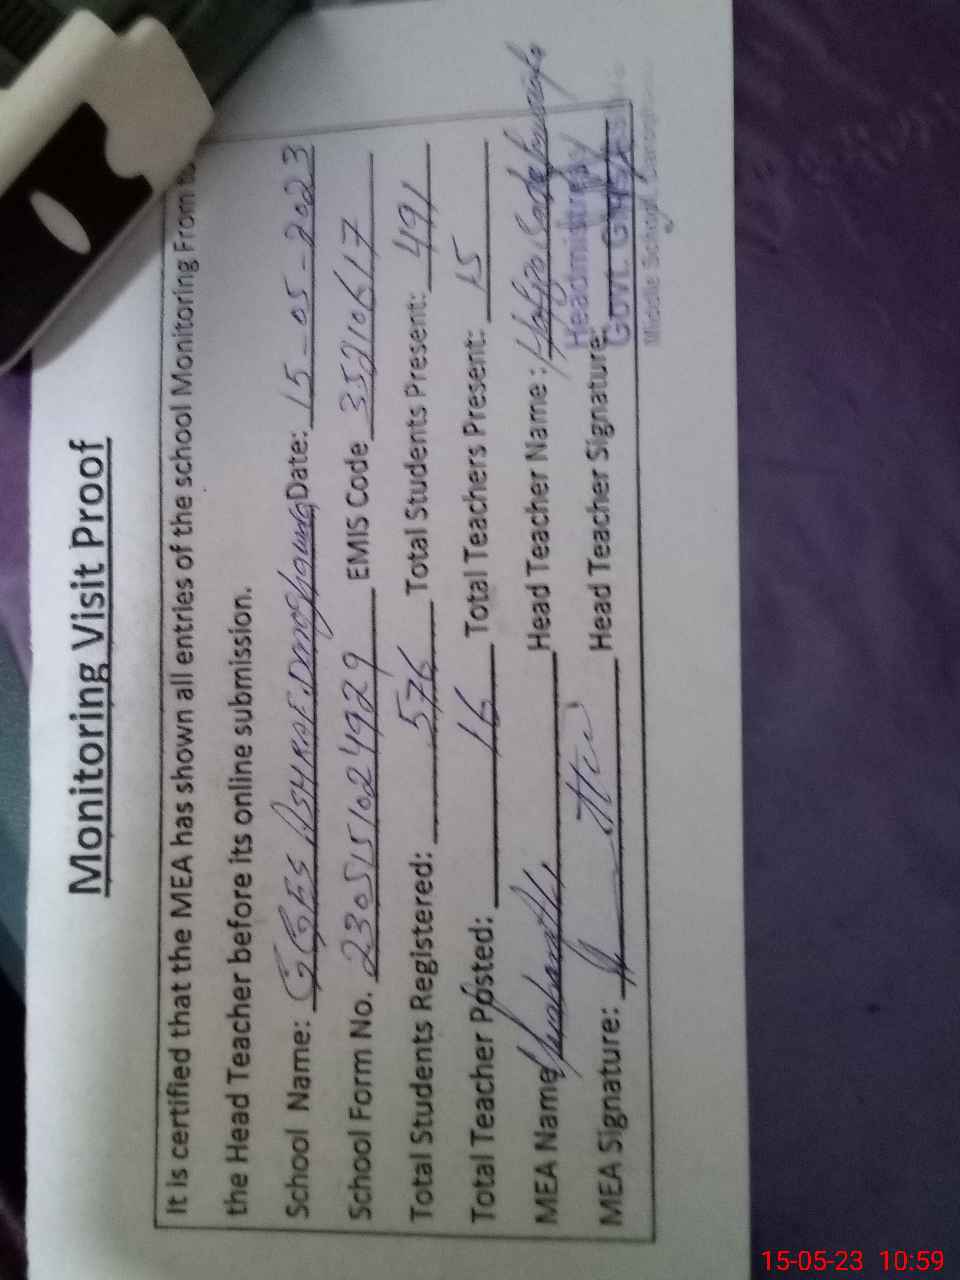 Monitoring Visit Proof
It is certified that the MEA has shown all entries of the school Monitoring From
the Head Teacher before its online submission.
School Name: GGES Date: 15-05-2023
School Form No. 2305151024929 EMIS Code 35210617
Total Students Registered: 576 Total Students Present: 491
Total Teacher Posted: 16 Total Teachers Present: 15
MEA Name Head Teacher Name:
Headmistress
MEA Signature: Head Teacher Signature:
Govt.
Middle School
15-05-23 10:59